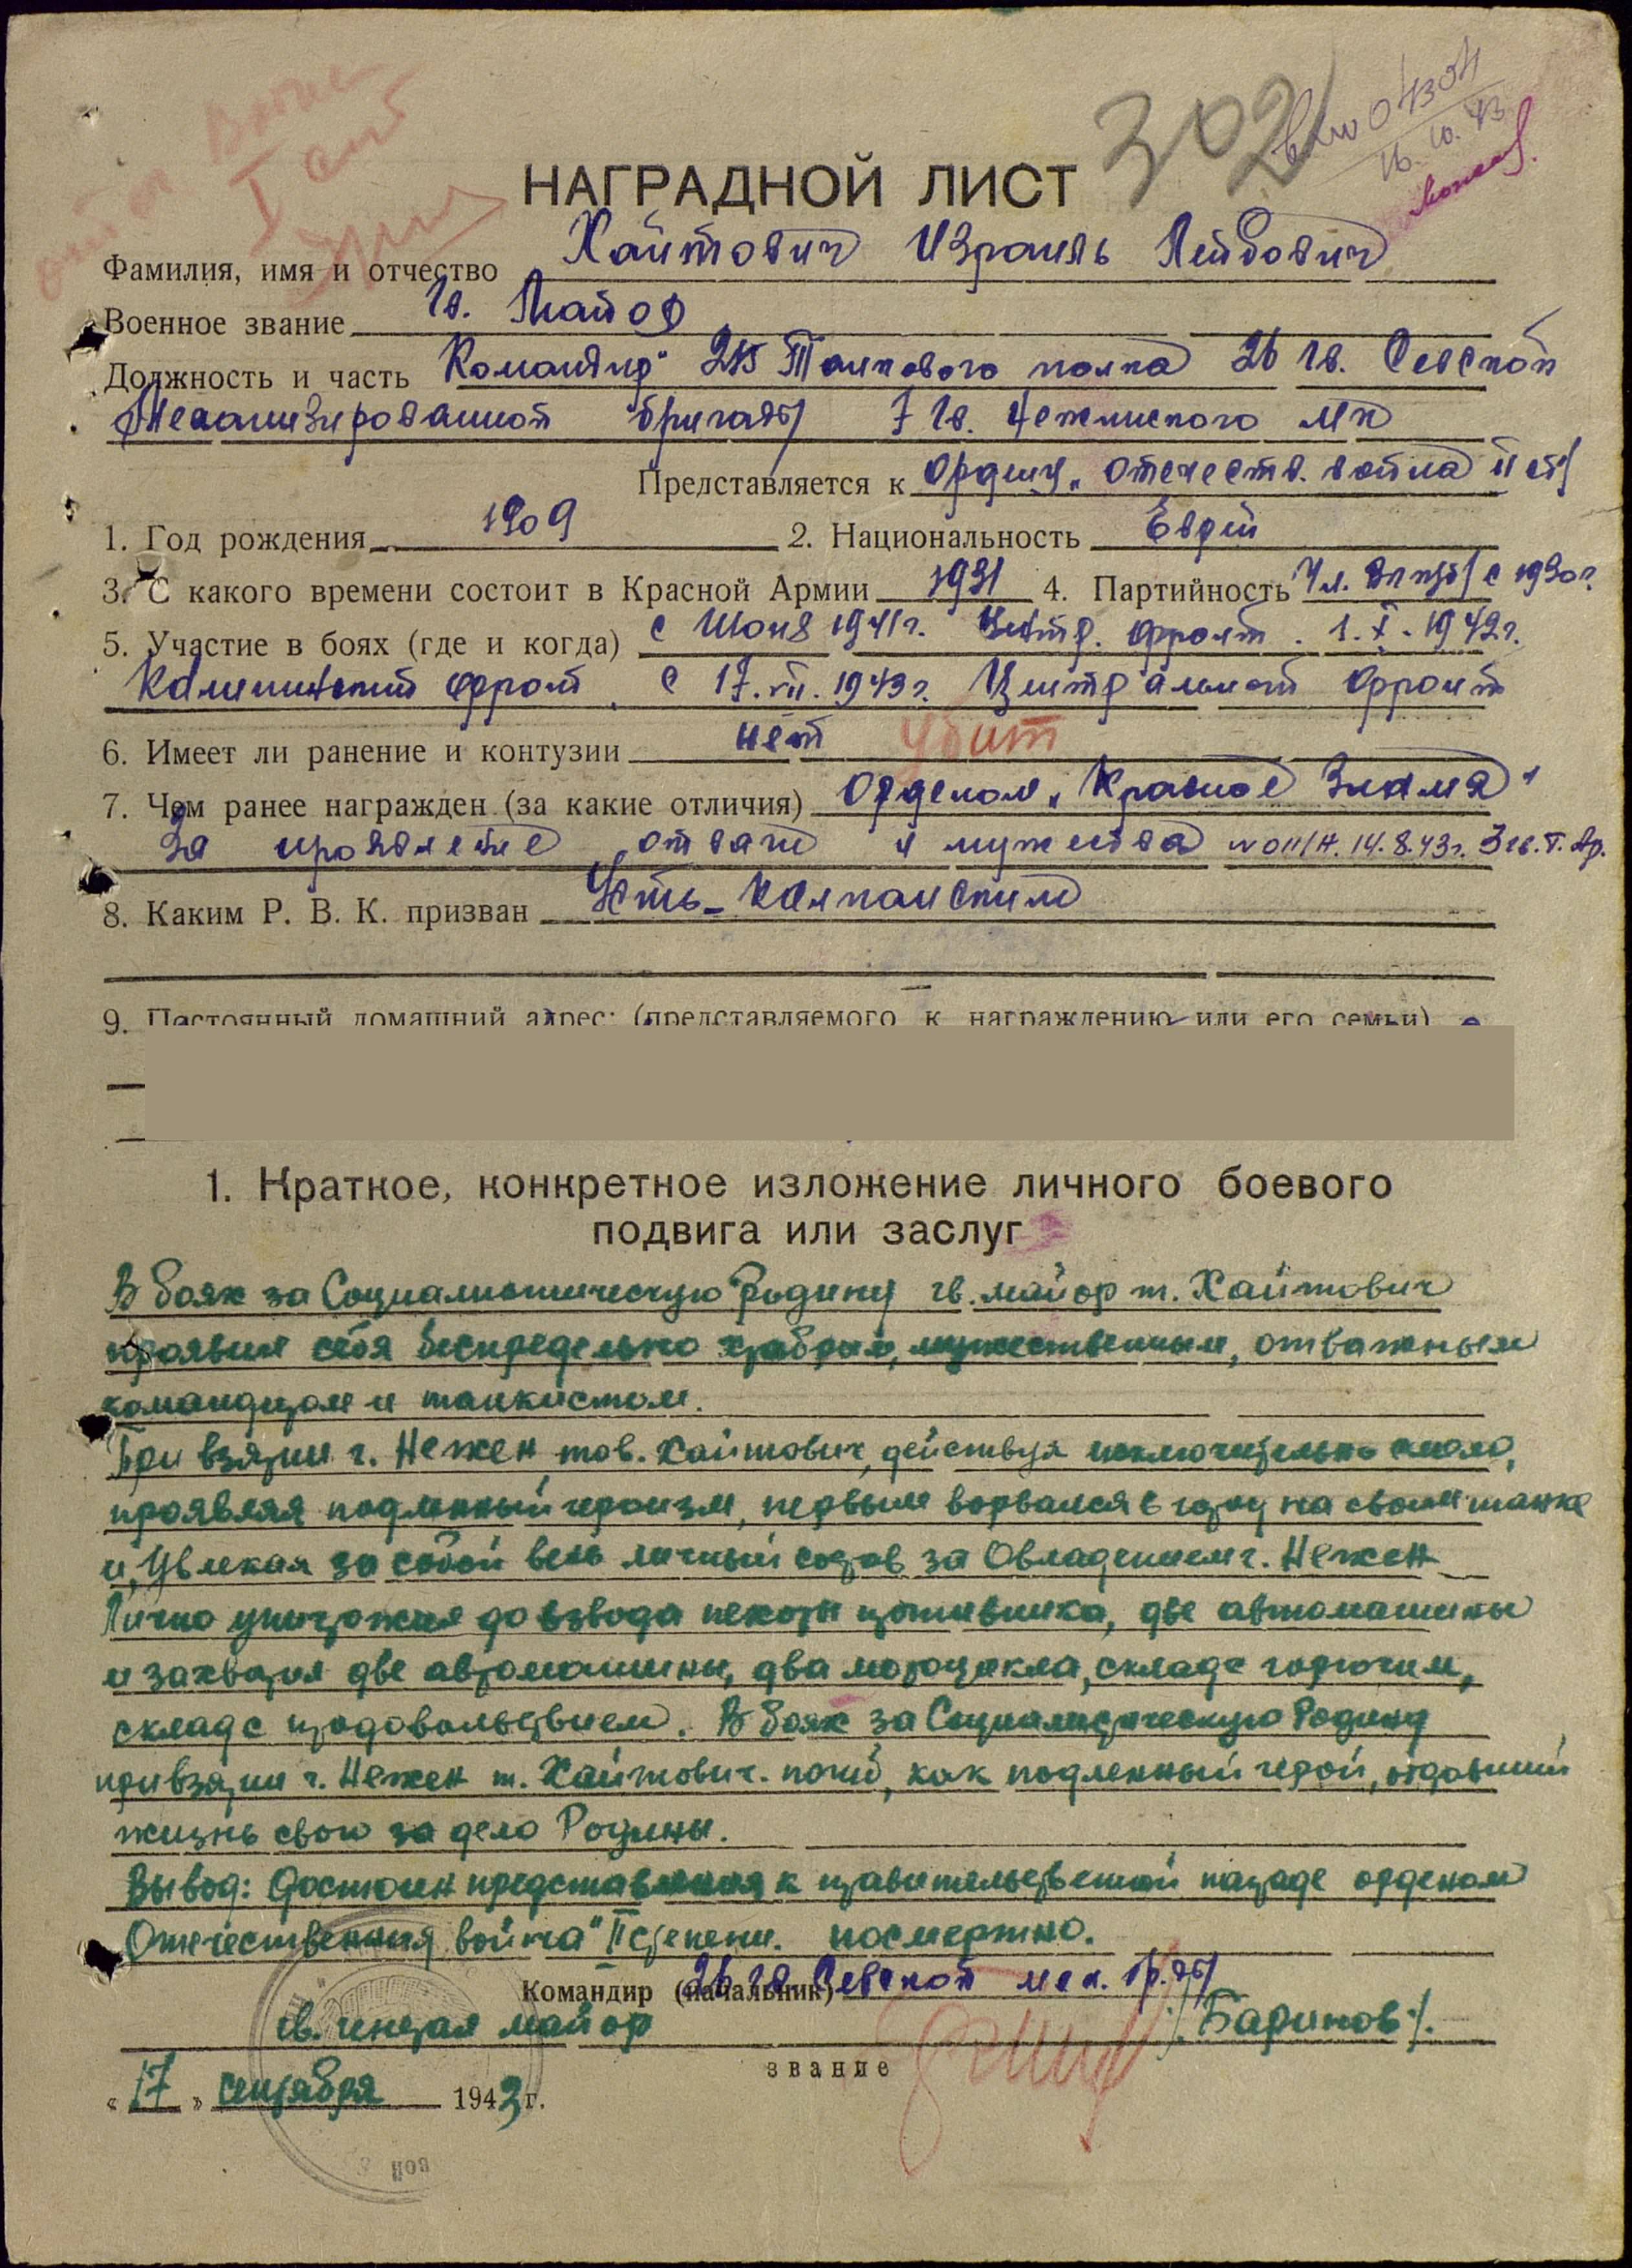 302
16.10.43
НАГРАДНОЙ ЛИСТ
Фамилия, имя и отчество Хайтович Израиль Лейбович
Военное звание Гв. Майор
Должность и часть Командир 215 Танкового полка 26 Гв. Севской
Механизированной бригады 7 Гв. Нежинского МК
Представляется к Ордену „Отечеств. война II ст"
1. Год рождения 1909 2. Национальность Еврей
3. С какого времени состоит в Красной Армии 1931 4. Партийность Чл. ВКП(б) с 1930 г.
5. Участие в боях (где и когда) с Июня 1941 г. фронт. 1.X.1942 г.
Калининский фронт. с 17.VII.1943 г. Центральный фронт
6. Имеет ли ранение и контузии нет убит
7. Чем ранее награжден (за какие отличия) Орденом „Красное Знамя"
За проявление отваги и мужества № 011/н. 14.8.43 г. 3 гв. Т. Ар.
8. Каким Р. В. К. призван Усть-Калманским
9. Постоянный домашний адрес: (представляемого к награждению или его семьи)
1. Краткое, конкретное изложение личного боевого
подвига или заслуг
В боях за Социалистическую Родину гв. майор т. Хайтович
проявил себя беспредельно храбрым, мужественным, отважным
командиром и танкистом.
При взятии г. Нежен тов. Хайтович, действуя исключительно смело,
проявляя подлинный героизм, первым ворвался в город на своем танке
и, увлекая за собой весь личный состав за Овладением г. Нежен
Лично уничтожил до взвода пехоты противника, две автомашины
и захватил две автомашины, два мотоцикла, склад с горючим,
склад с продовольствием. В боях за Социалистическую Родину
при взятии г. Нежен т. Хайтович погиб, как подленный герой, отдавший
жизнь свою за дело Родины.
Вывод: Достоин представления к правительственной награде орденом
„Отечественная война" II степени. посмертно.
Командир (начальник) 26 гв. Севской мех. бр-ды
гв. генерал майор /Баринов/.
звание
« 17 » сентября 1943 г.